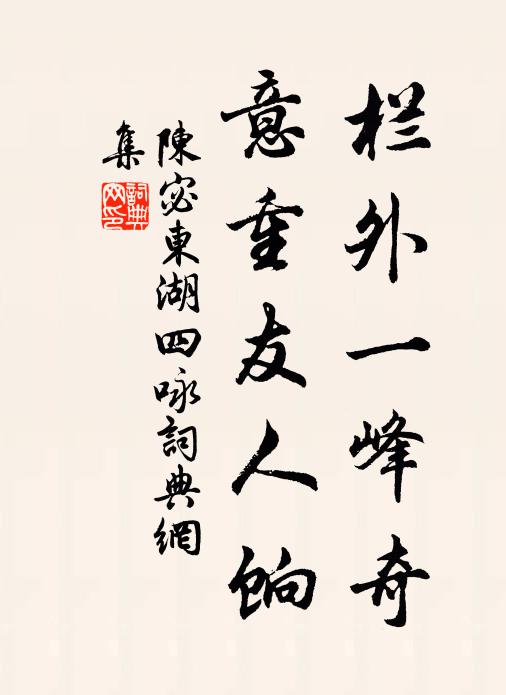 栏外一峰奇
意重友人饷
陳宓東湖四咏詞典網
集
詞典网印